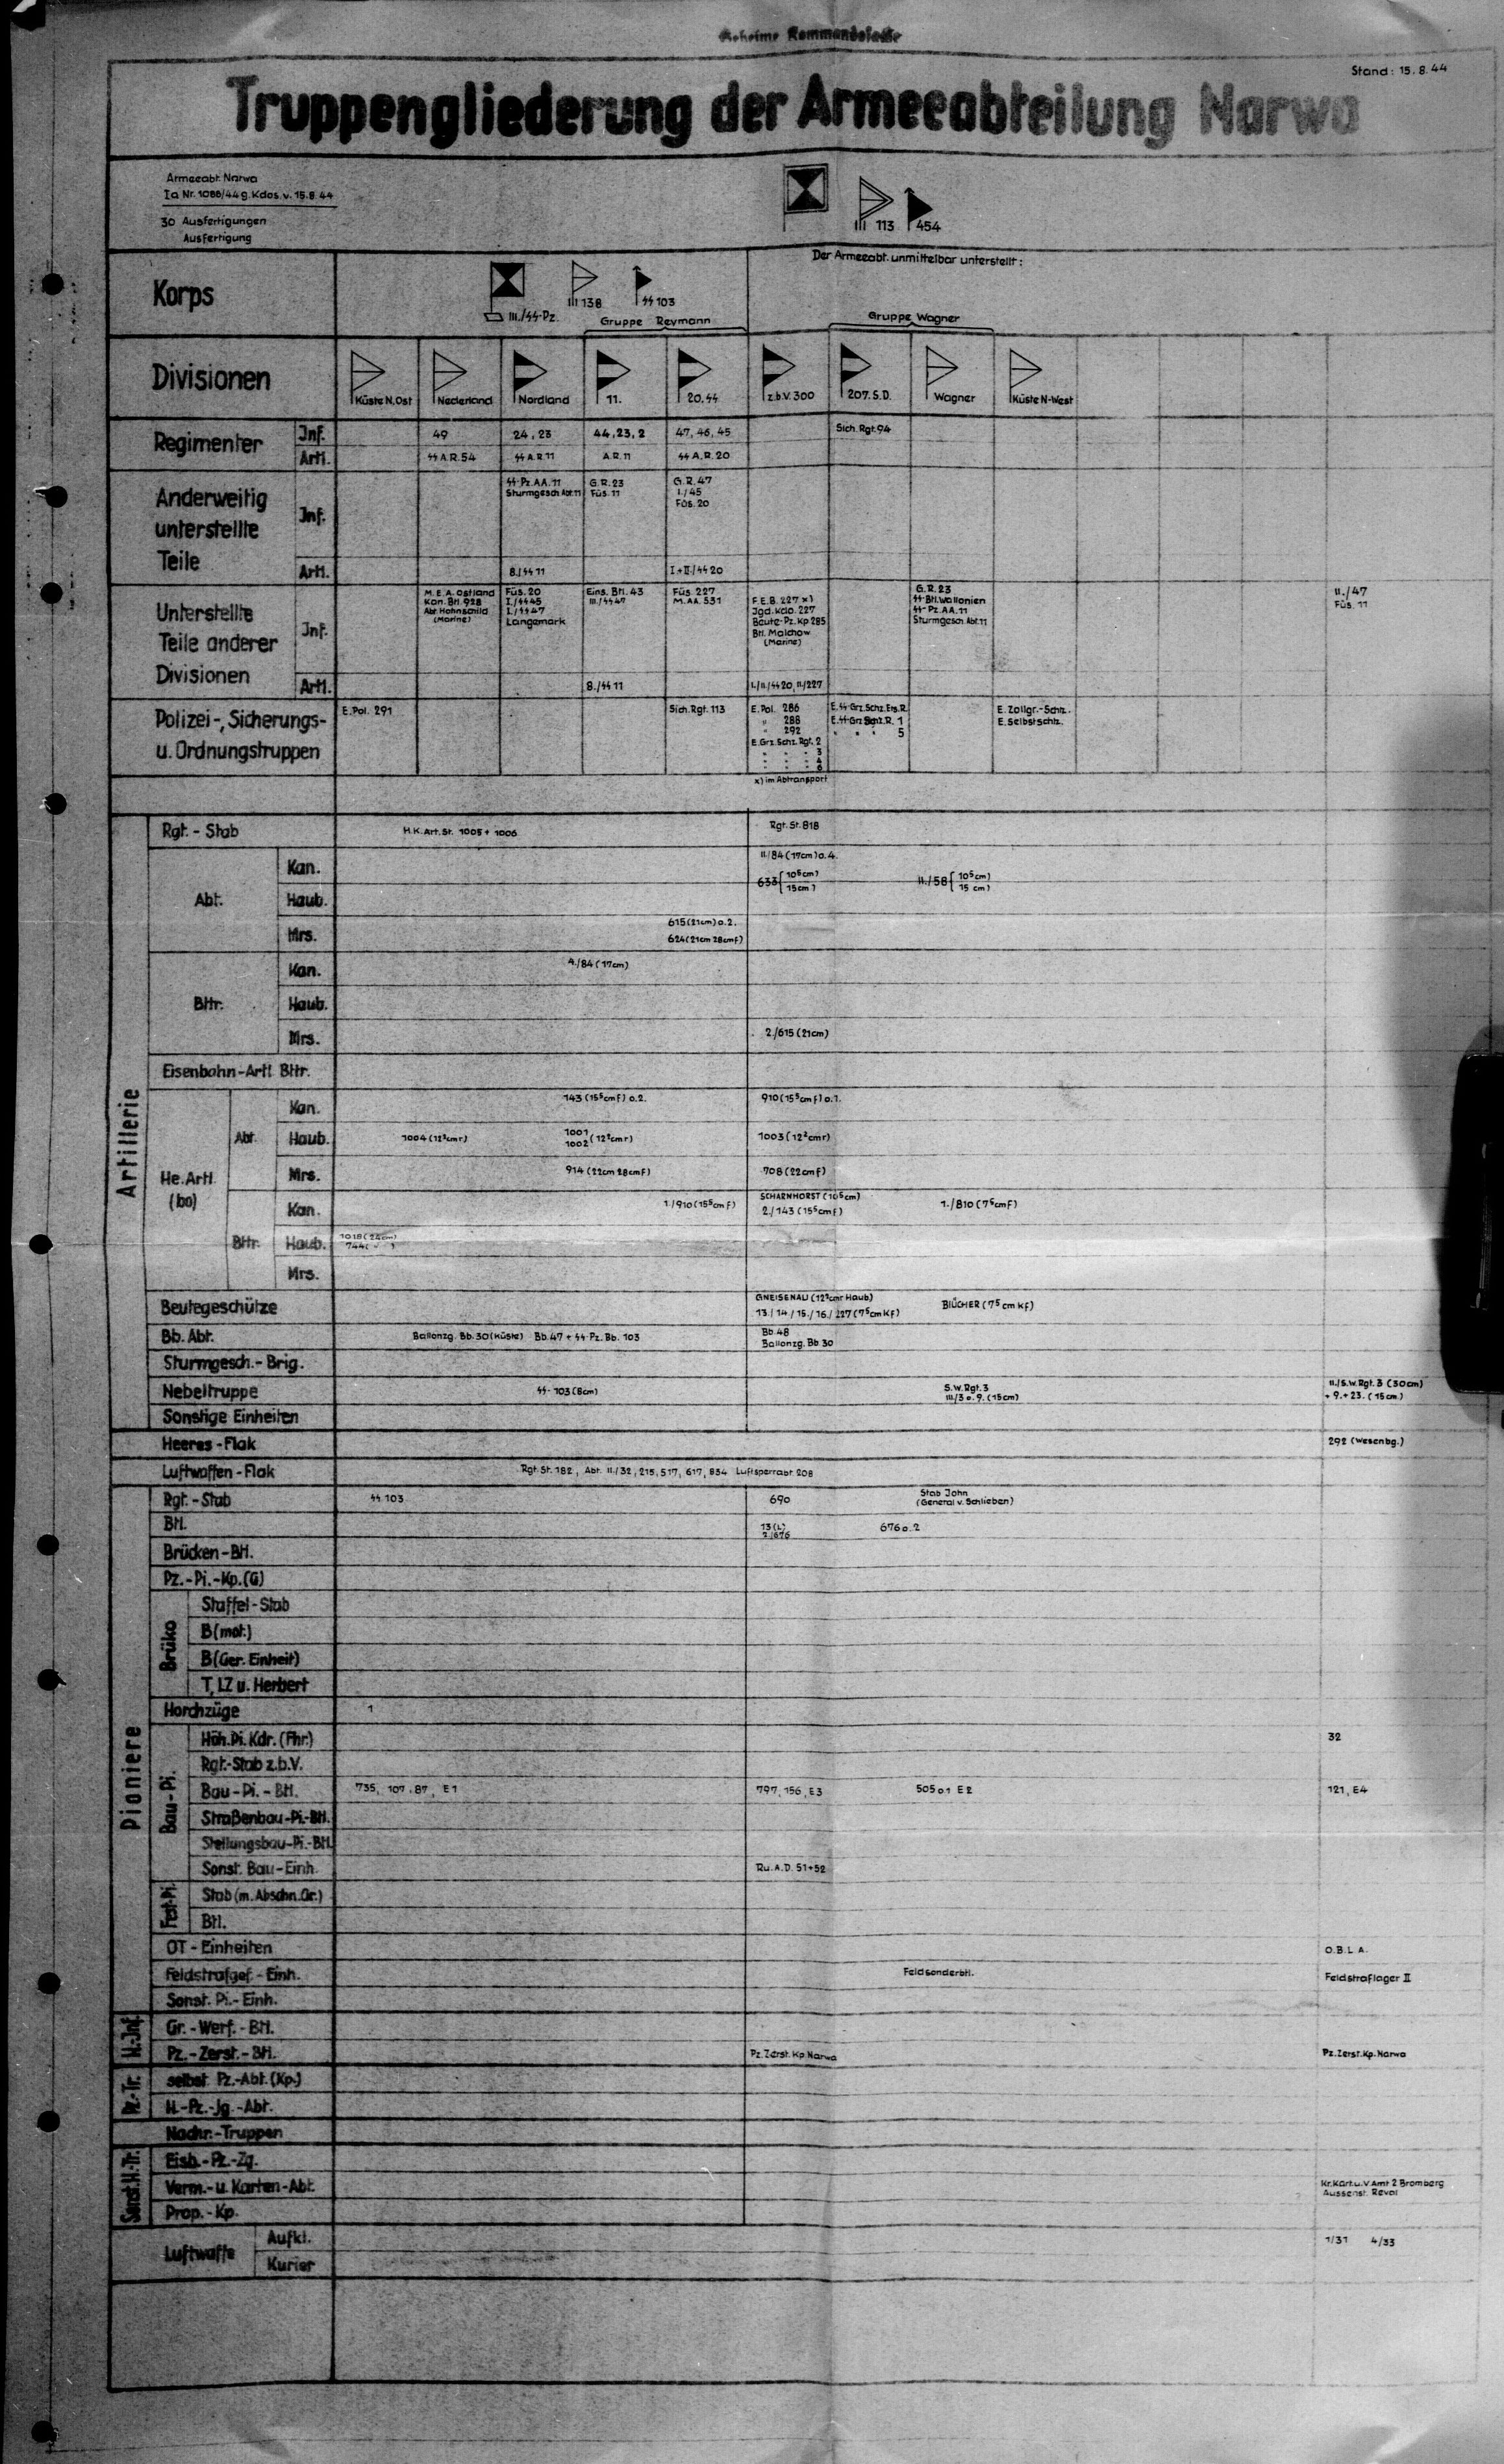 Geheime Kommandosache
Stand: 15.8.44
Truppengliederung der Armeeabteilung Narwa
Armeeabt. Narwa
Ia Nr. 1086/44 g.Kdos. v. 15.8.44
30 Ausfertigungen
Ausfertigung
III 113 454
Korps
III./SS-Pz. III 138 SS 103
Gruppe Reymann
Der Armeeabt. unmittelbar unterstellt:
Gruppe Wagner
Divisionen
Küste N.Ost Nederland Nordland 11. 20.SS z.b.V. 300 207. S.D. Wagner Küste N-West
Regimenter
Inf. 49 24, 23 44, 23, 2 47, 46, 45 Sich. Rgt. 94
Artl. SS A.R. 54 SS A.R. 11 A.R. 11 SS A.R. 20
Anderweitig
unterstellte
Teile
Inf.
SS-Pz. AA. 11
Sturmgesch. Abt. 11
G.R. 23
Füs. 11
G.R. 47
I./45
Füs. 20
Artl. 8./SS 11 I.+II./SS 20
Unterstellte
Teile anderer
Divisionen
Inf.
M.E.A. Ostland
Kan. Btl. 928
Abt. Hohnschild
(Marine)
Füs. 20
I./SS 45
I./SS 47
Langemark
Eins. Btl. 43
III./SS 47
Füs. 227
M.AA. 531
F.E.B. 227 x)
Jgd. Kdo. 227
Beute-Pz. Kp 285
Btl. Malchow
(Marine)
G.R. 23
SS-Btl. Wallonien
SS-Pz. AA. 11
Sturmgesch. Abt. 11
II./47
Füs. 11
Artl. 8./SS 11 I./II./SS 20, II/227
Polizei-, Sicherungs-
u. Ordnungstruppen
E. Pol. 291
Sich. Rgt. 113
E. Pol. 286
" 288
" 292
E. Grz. Schz. Rgt. 2
" " " 3
" " " 4
" " " 6
E. SS-Grz. Schz. Ers. R.
E. SS-Grz. Schz. R. 1
" " " 5
E. Zollgr.-Schtz.
E. Selbstschtz.
x) im Abtransport
Artillerie
Rgt.-Stab H.K. Art. St. 1005 + 1006 Rgt. St. 818
Abt.
Kan. II/84 (17cm) o. 4.
Haub. 633 { 10⁵cm) 15cm) II./58 { 10⁵cm) 15 cm)
Mrs. 615 (21cm) o. 2.
624 (21cm 28cm f)
Bttr.
Kan. 4./84 (17cm)
Haub.
Mrs. 2./615 (21cm)
Eisenbahn-Artl. Bttr.
He. Artl.
(bo)
Abt.
Kan. 143 (15⁵cm f) o. 2. 910 (15⁵cm f) o. 1.
Haub. 1004 (12²cm r) 1001 1002 (12²cm r) 1003 (12²cm r)
Mrs. 914 (22cm 28cm f) 708 (22cm f)
Bttr.
Kan. 1./910 (15⁵cm f) SCHARNHORST (10⁵cm) 1./810 (7⁵cm f)
2./143 (15⁵cm f)
Haub. 1018 (24cm)
744 ( " )
Mrs.
Beutegeschütze GNEISENAU (12²cm r Haub)
13./14./15./16./227 (7⁵cm Kf) BLÜCHER (7⁵ cm Kf)
Bb. Abt. Ballonzg. Bb. 30 (Küste) Bb. 47 + SS-Pz. Bb. 103 Bb 48
Ballonzg. Bb 30
Sturmgesch.-Brig.
Nebeltruppe SS-103 (8cm) S.W. Rgt. 3
III/3 o. 9. (15cm)
II./S.W. Rgt. 3 (30cm)
+ 9. + 23. (15cm)
Sonstige Einheiten
Heeres-Flak 292 (Wesenbg.)
Luftwaffen-Flak Rgt. St. 182, Abt. II./32, 215, 517, 617, 834 Luftsperrabt. 208
Pioniere
Rgt.-Stab SS 103 690 Stab John
(General v. Schlieben)
Btl. 13 (L)
2./676 676 o. 2
Brücken-Btl.
Pz.-Pi.-Kp. (G)
Brüko
Staffel-Stab
B (mot.)
B (Ger. Einheit)
T, LZ u. Herbert
Horchzüge 1
Bau-Pi.
Höh. Pi. Kdr. (Fhr.) 32
Rgt.-Stab z.b.V.
Bau-Pi.-Btl. 735, 107, 87, E1 797, 156, E3 505 o. 1 E2 121, E4
Straßenbau-Pi.-Btl.
Stellungsbau-Pi.-Btl.
Sonst. Bau-Einh. Ru. A.D. 51+52
Fest.-Pi.
Stab (m. Abschn. Gr.)
Btl.
OT-Einheiten O.B.L.A.
Feldstrafgef.-Einh. Feldsonderbtl. Feldstraflager II
Sonst. Pi.-Einh.
H.-Inf.
Gr.-Werf.-Btl.
Pz.-Zerst.-Btl. Pz. Zerst. Kp Narwa Pz. Zerst. Kp. Narwa
Pz.-Tr.
selbst. Pz.-Abt. (Kp.)
H.-Pz.-Jg.-Abt.
Nachr.-Truppen
Sonst. H.-Tr.
Eisb.-Pz.-Zg.
Verm.-u. Karten-Abt. Kr. Kart. u. V. Amt 2 Bromberg
Aussenst. Reval
Prop.-Kp.
Luftwaffe
Aufkl. 1/31 4/33
Kurier